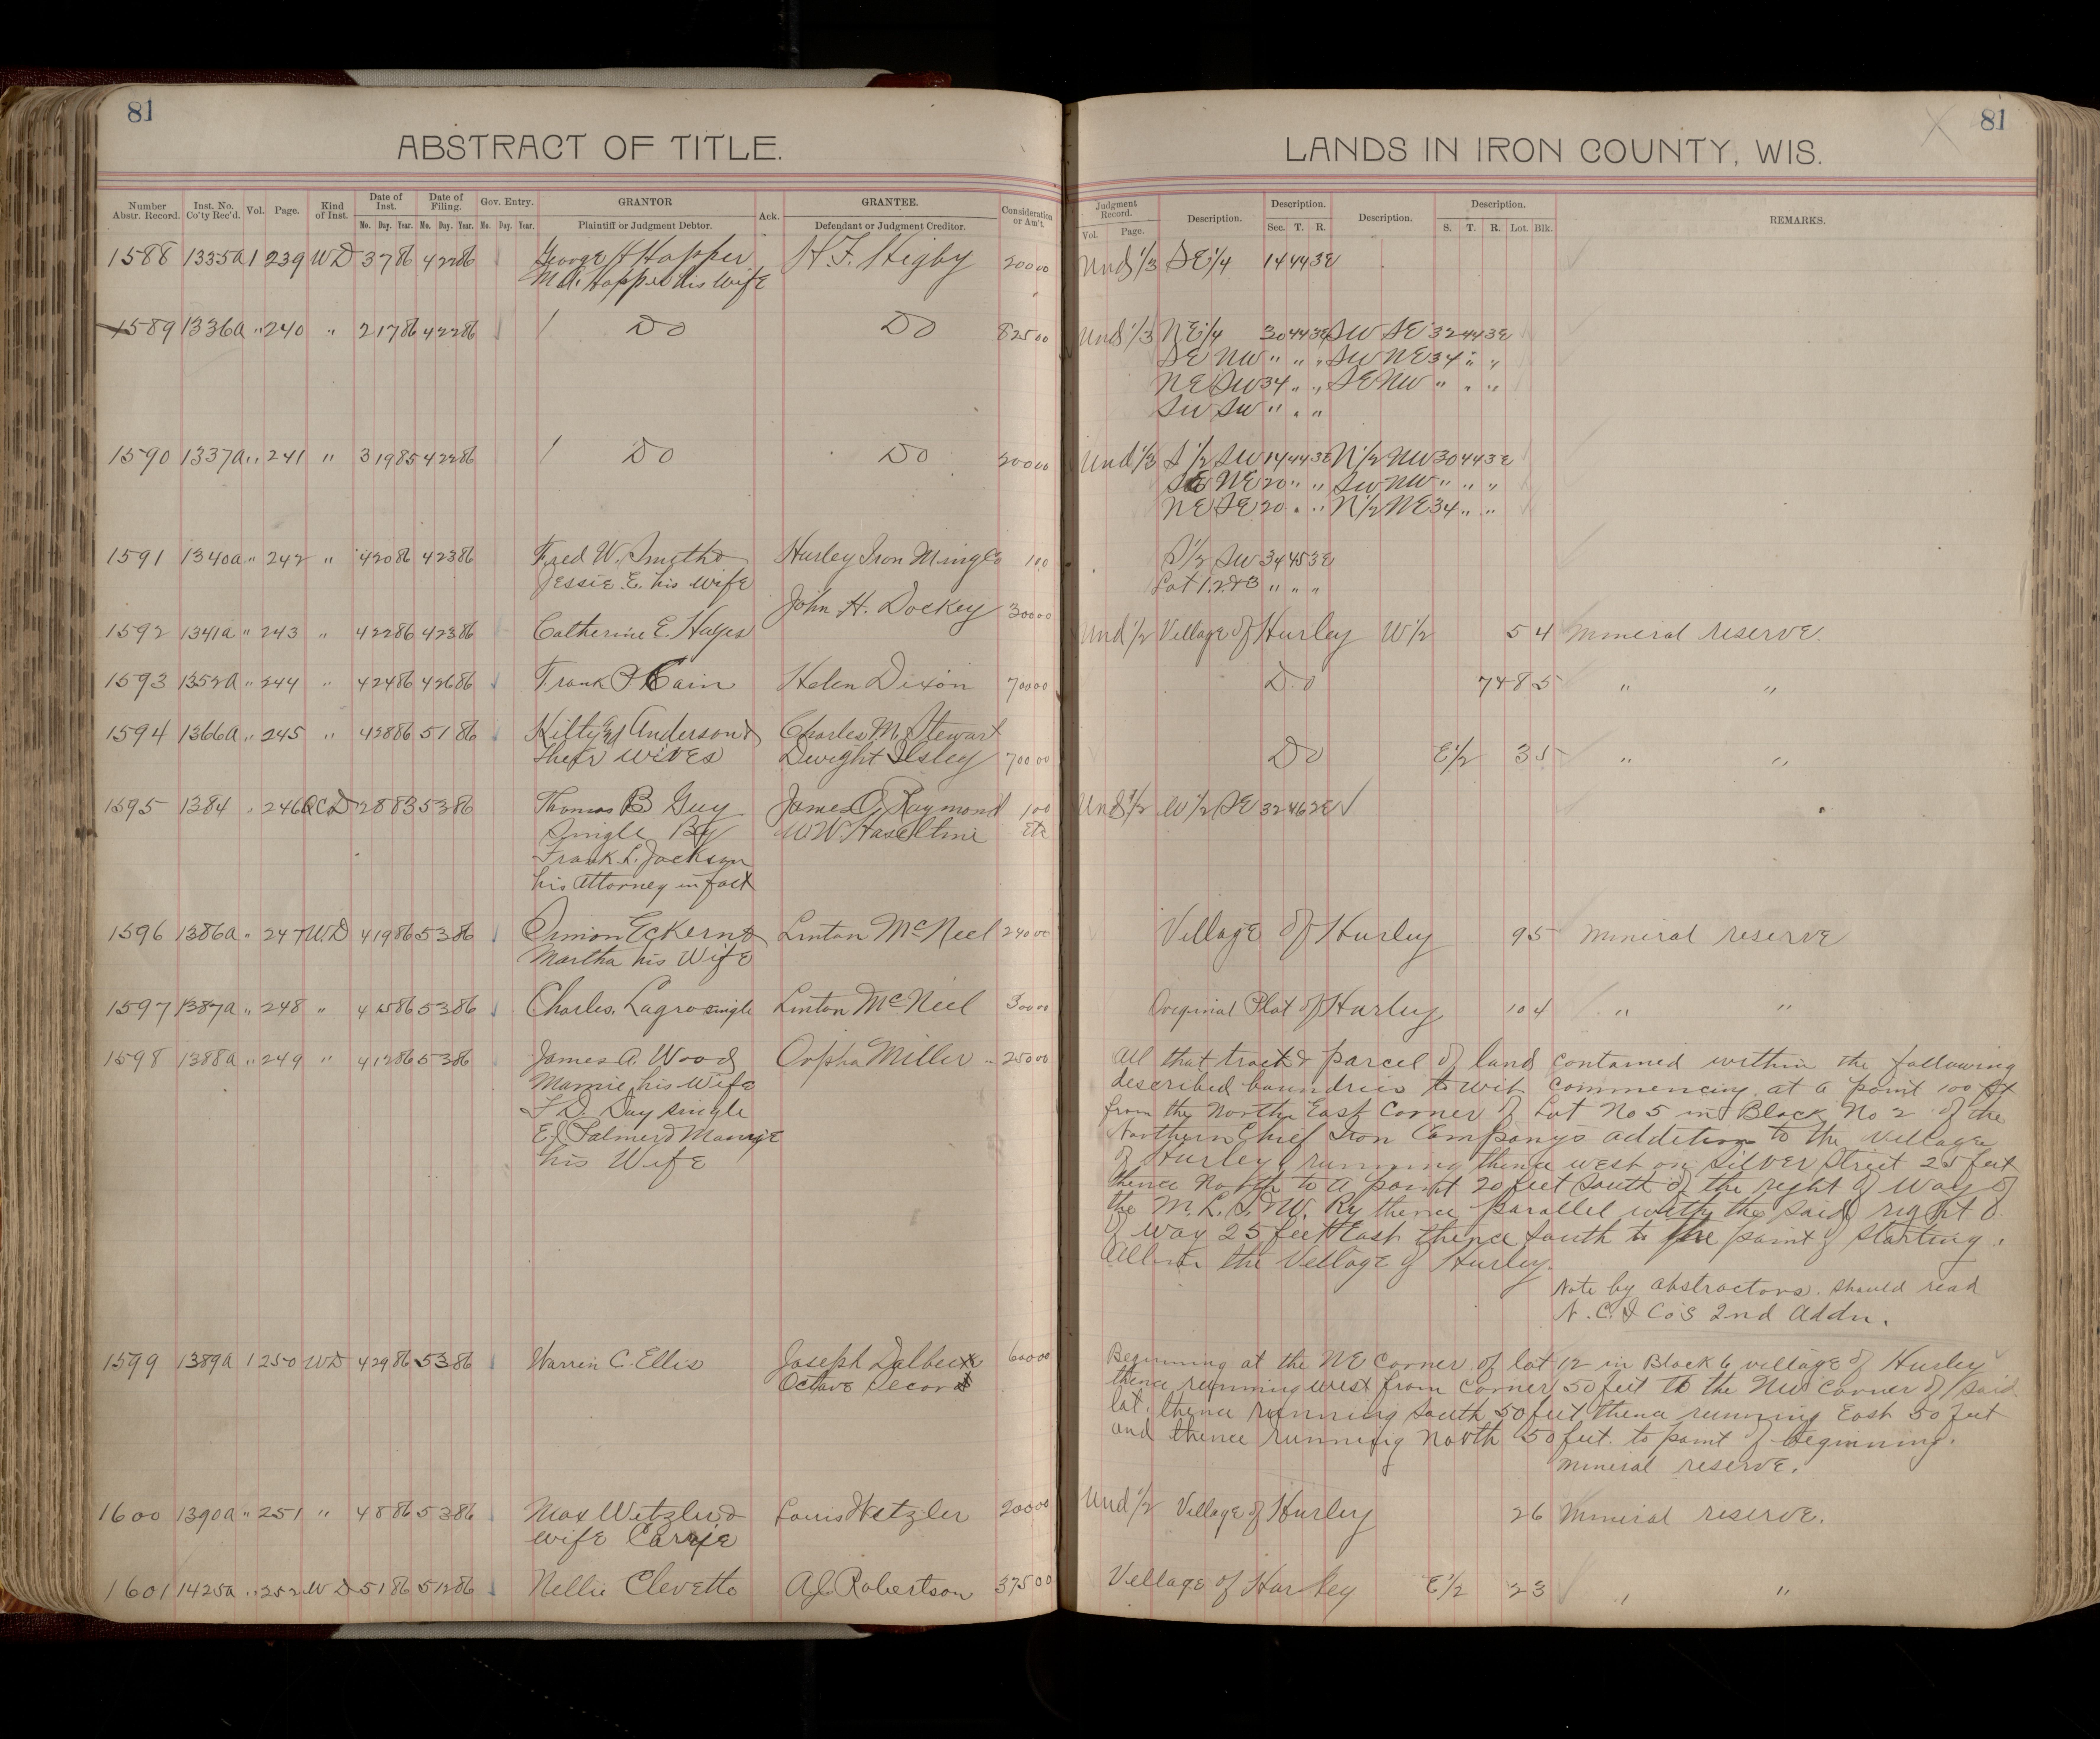 81
ABSTRACT OF TITLE.
Number Abstr. Record. Inst. No. Co'ty Rec'd. Vol. Page. Kind of Inst. Date of Inst. Date of Filing. Gov. Entry. GRANTOR Ack. GRANTEE. Consideration or Am't.
Mo. Day. Year. Mo. Day. Year. Mo. Day. Year. Plaintiff or Judgment Debtor. Defendant or Judgment Creditor.
1588 1335a 1 239 WD 3 7 86 4 22 86 George H Hopper H.F. Higby 200 00
M.A. Hopper his Wife
1589 1336a " 240 " 2 17 86 4 22 86 / Do Do 825 00
1590 1337a " 241 " 3 19 85 4 22 86 / Do Do 200 00
1591 1340a " 242 " 4 20 86 4 23 86 Fred W. Smith & Hurley Iron Ming Co 1 00
Jessie E. his wife
John H. Dockey 300 00
1592 1341a " 243 " 4 22 86 4 23 86 Catherine E. Hayes
1593 1352a " 244 " 4 24 86 4 26 86 Frank Cain Helen Dixon 700 00
1594 1366a " 245 " 4 28 86 5 1 86 Anderson & Charles M. Stewart
their wives Dwight Ilsley 700 00
1595 1384 " 246 QCD 2 8 83 5 3 86 Thomas B Guy James O. Raymond 1 00
Single By W W. Haseltine etc
Frank L. Jackson
his Attorney in fact
1596 1386a " 247 WD 4 19 86 5 3 86 Simon Eckern & Linton McNeel 240 00
Martha his Wife
1597 1387a " 248 " 4 15 86 5 3 86 Charles Lagro single Linton McNeel 300 00
1598 1388a " 249 " 4 12 86 5 3 86 James A. Wood & Orpha Miller 250 00
Mamie his Wife
F D. Day single
E J Palmer & Mamie
his Wife
1599 1389a 1 250 WD 4 29 86 5 3 86 Warren C. Ellis Joseph 600 00
Octave Secor
1600 1390a " 251 " 4 8 86 5 3 86 Max Wetzler & Louis Wetzler 200 00
wife Carrie
1601 1425a " 252 WD 5 1 86 5 12 86 Nellie Clevette A J Robertson 375 00
81
LANDS IN IRON COUNTY, WIS.
Judgment Record. Description. Description. Description. Description. REMARKS.
Vol. Page. Sec. T. R. S. T. R. Lot. Blk.
Und 1/3 SE 1/4 14 44 3E
Und 1/3 NE 1/4 30 44 3E SW SE 32 44 3E
SE NW " " " SW NE 34 " "
NE SW 34 " " SE NW " " "
SW SW " " "
Und 1/3 S 1/2 SW 14 44 3E N 1/2 NW 30 44 3E
SE NE 20 " " SW NW " " "
NE SE 20 " " N 1/2 NE 34 " "
S 1/2 SW 34 45 3E
Lot 1.2.&3 " " "
Und 1/2 Village of Hurley W 1/2 5 4 Mineral reserve.
Do 7 & 8 5 " "
Do E 1/2 3 5 " "
Und 1/2 W 1/2 SE 32 46 2E ✓
Village of Hurley 9 5 Mineral reserve
Original Plat of Hurley 10 4 " "
All that tract & parcel of land contained within the following
described boundries to wit Commencing at a point 100 ft
from the North East Corner of Lot No 5 in Block No 2 of the
Northern Chief Iron Companys addition to the Village
of Hurley, running thence west on Silver Street 25 feet
thence North to a point 20 feet South of the right of way of
the M. L. S. & W. Ry thence parallel with the said right o
f way 25 feet East thence South to the point of starting.
All in the Village of Hurley.
Note by abstractors. Should read
N. C. I Co's 2nd Addn.
Beginning at the NE Corner of lot 12 in Block 6 village of Hurley
thence running west from corner 50 feet to the NW Corner of said
lot. thence running South 50 feet thence running East 50 feet
and thence running North 50 feet. to point of beginning.
Mineral reserve.
Und 1/2 Village of Hurley 2 6 Mineral reserve.
Village of Hurley E 1/2 2 3 " "